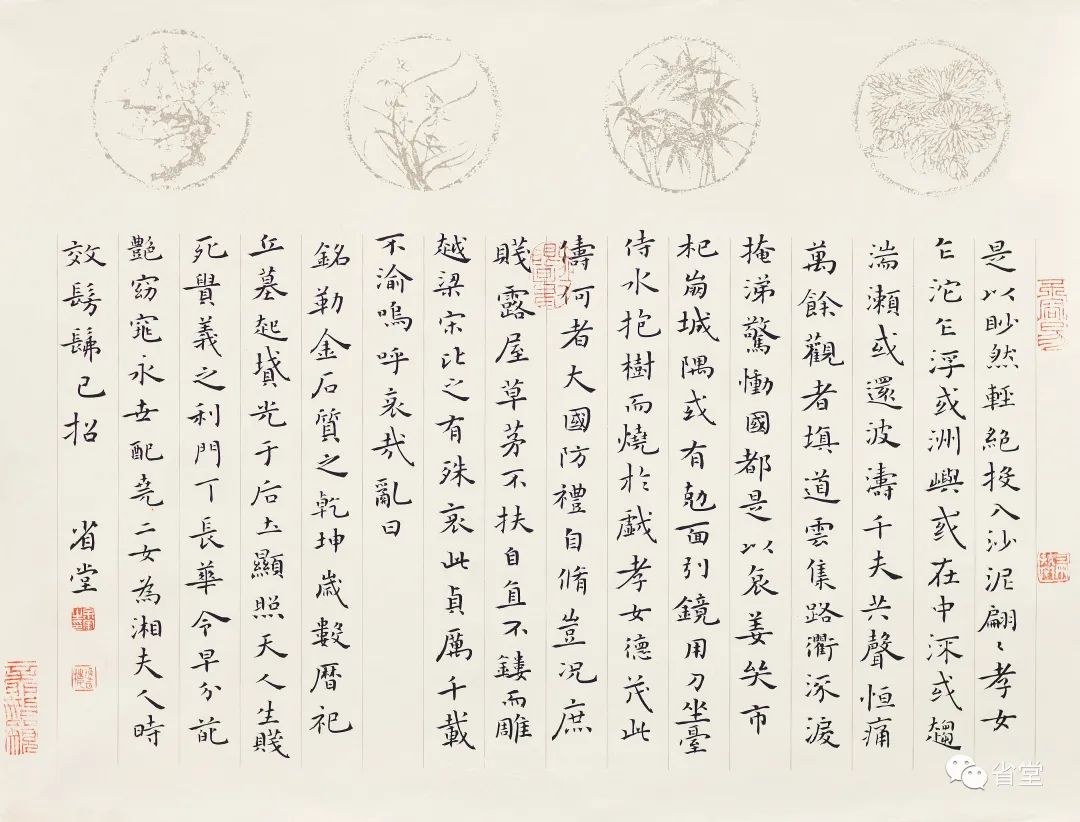 是以眇然輕絕投入沙泥翩〻孝女
乍沱乍浮或洲嶼或在中深或趨
湍瀨或還波濤千夫共聲恒痛
萬餘觀者填道雲集路衢涿淚
掩涕驚慟國都是以哀姜哭市
杞崩城隅或有勊面引鏡用刀坐臺
侍水抱樹而燒於戲孝女德茂此
儔何者大國防禮自脩豈況庶
賤露屋草茅不扶自直不鏤而雕
越梁宋比之有殊哀此貞厲千載
不渝嗚呼哀哉亂曰
銘勒金石質之乾坤歲數曆祀
丘墓起墳光于后土顯照天人生賤
死貴義之利門丁長華令早分葩
艷窈窕永世配堯二女為湘夫人時
效髣髴已招 省堂
省堂